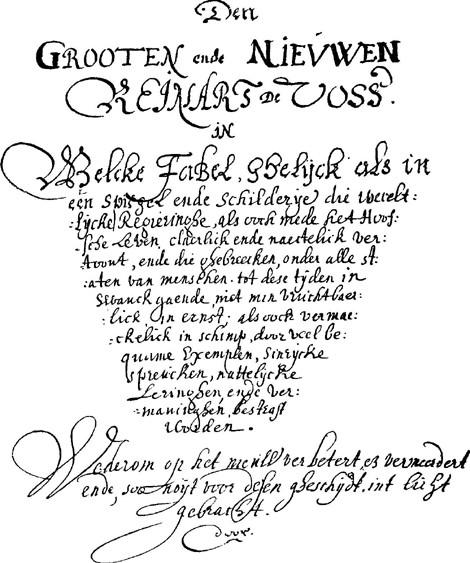 Den
GROOTEN ende NIEVWEN
REINART De Voss.
in
Welcke Fabel, Ghelijck als in
een Spiegel ende Schilderije die Werelt-
:lijcke Regieringhe, als oock mede het Hoof-
:sche Leven, claerlick ende naectelick ver:
:toont, ende die ghebreecken, onder alle st:
:aten van menschen. tot dese tijden in
Swanck gaende, niet min vruchtbaer:
:lick in ernst, als oock vermae:
:ckelick in schimp, door veel be:
quame Exemplen, Sinrycke
spreucken, nuttelijcke
Leringhen, ende ver:
:maninghen, bestraft
worden.
Wederom op het nieuw verbetert, en vermeerdert
ende, soo noijt voor desen gheschijdt, int licht
gebracht.
door.